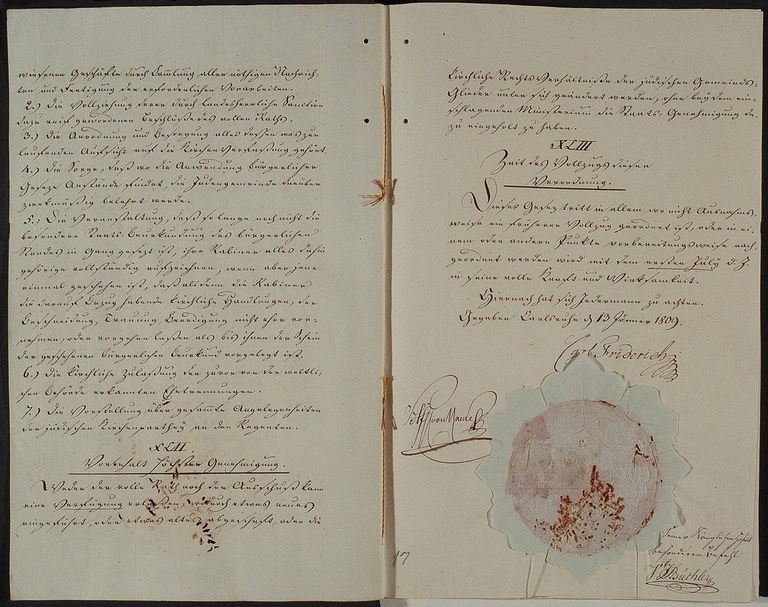 wiesenen Geschäfte durch Samlung aller nöthigen Nachrich-
ten und Fertigung der erforderlichen Vorarbeiten.
2.) die Vollziehung derer durch Landesherrliche Sanction
dazu reif gewordenen Beschlüße des vollen Raths.
3.) Die Anordnung und Besorgung alles dessen was zur
laufenden Aufsicht auf die Kirchen Verfassung gehört.
4.) die Sorge, daß wo die Anwendung bürgerlicher
Geseze Anstände findet die Judengemeinde darüber
zweckmäßig belehrt werde.
5.) Die Veranstaltung, daß so lange noch nicht die
besondere Staats Beurkundung des bürgerlichen
Standes in Gang gesezt ist, ihre Rabiner alles dahin
gehörige vollständig aufzeichnen, wenn aber jene
einmal geschehen ist, daß alsdenn die Rabiner
die darauf Bezug habende kirchliche Handlungen, der
Beschneidung, Trauung, Beerdigung nicht eher vor-
nehmen, oder vorgehen laßen als bis ihnen der Schein
der geschehenen bürgerlichen Beurkund vorgelegt ist.
6.) die kirchliche Zulassung der zuvor von der weltli-
chen Behörde erkannten Ehetrennungen.
7.) die Vorstellung über gesamte Angelegenheiten
der jüdischen Kirchenparthey an den Regenten.
XLII
Vorbehalt höchster Genehmigung.
Weder der volle Rath noch der Ausschuß kann
eine Verfügung erlassen, wodurch etwas neues
eingeführt, oder etwas altes abgeschaft, oder die
kirchliche Rechts Verhältniße der jüdischen Gemeinds-
Glieder unter sich geändert werden, ohne bey dem ein-
schlagenden Ministerium die Staats-Genehmigung da-
zu eingeholt zu haben.
XLIII
Zeit des Vollzugs dieser
Verordnung.
Dieses Gesez tritt in allem wo nicht Ausnahms-
weise ein früherer Vollzug geordnet ist, oder in ei-
nem oder andern Punkte vorbereitungsweise nach-
geordnet werden wird mit dem ersten July d. J.
in seine volle Kraft und Wirksamkeit.
Hiernach hat sich Jedermann zu achten.
Gegeben Carlsruhe d 13 Jänner 1809.
Carl Friderich
Seiner Königlichen Hoheit
besonderen Befehl
Büchler
17